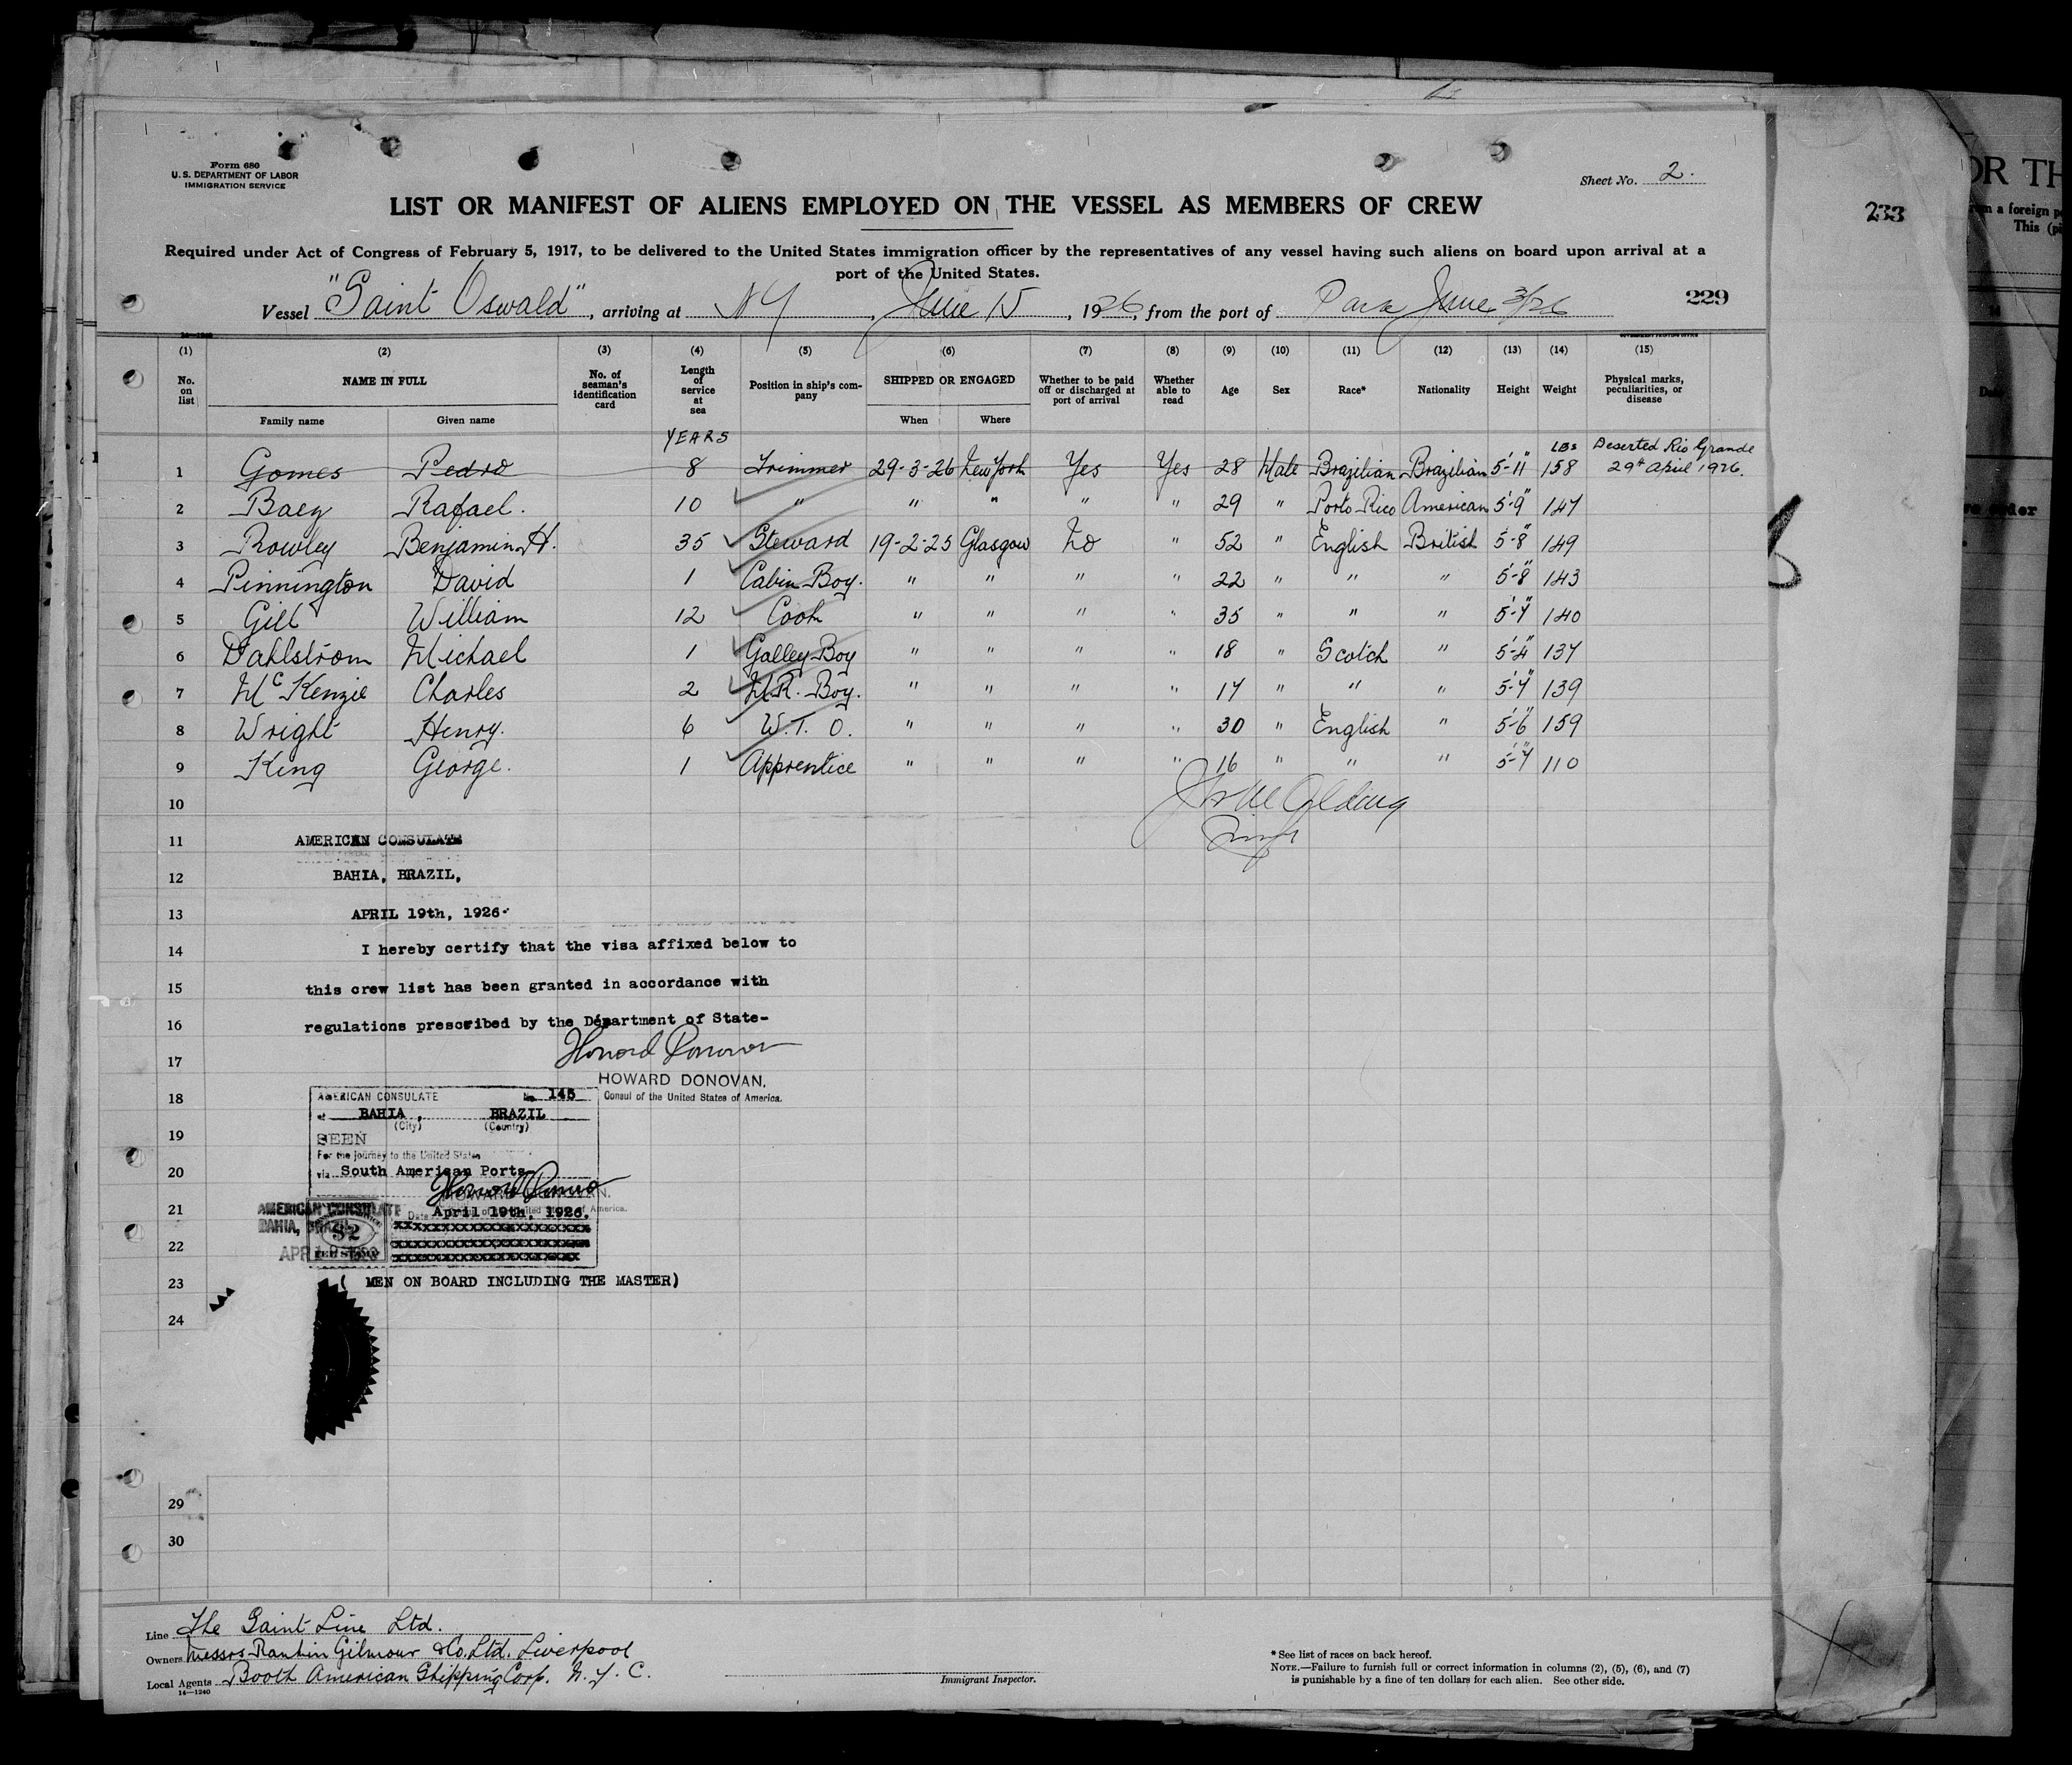 Form 680
U. S. DEPARTMENT OF LABOR
IMMIGRATION SERVICE
Sheet No. 2.
LIST OR MANIFEST OF ALIENS EMPLOYED ON THE VESSEL AS MEMBERS OF CREW
233
Required under Act of Congress of February 5, 1917, to be delivered to the United States immigration officer by the representatives of any vessel having such aliens on board upon arrival at a
port of the United States.
Vessel "Saint Oswald", arriving at NY, June 15, 1926, from the port of Para June 3/26
229
(1) (2) (3) (4) (5) (6) (7) (8) (9) (10) (11) (12) (13) (14) (15)
No. on list NAME IN FULL No. of seaman's identification card Length of service at sea Position in ship's company SHIPPED OR ENGAGED Whether to be paid off or discharged at port of arrival Whether able to read Age Sex Race* Nationality Height Weight Physical marks, peculiarities, or disease
Family name Given name When Where
YEARS LBS Deserted Rio Grande
1 Gomes Pedro 8 Trimmer 29-3-26 New York Yes Yes 28 Male Brazilian Brazilian 5'-11" 158 29th April 1926.
2 Baez Rafael. 10 " " " " " 29 " Porto Rico American 5'-9" 147
3 Rowley Benjamin H. 35 Steward 19-2-25 Glasgow No " 52 " English British 5'-8" 149
4 Pinnington David 1 Cabin Boy. " " " " 22 " " " 5'-8" 143
5 Gill William 12 Cook " " " " 35 " " " 5'-7" 140
6 Dahlstrom Michael 1 Galley Boy " " " " 18 " Scotch " 5'-4" 137
7 McKenzie Charles 2 M.R. Boy. " " " " 17 " " " 5'-7" 139
8 Wright Henry. 6 W. T. O. " " " " 30 " English " 5'-6" 159
9 King George. 1 Apprentice " " " " 16 " " " 5'-7" 110
10
11 AMERICAN CONSULATE
12 BAHIA, BRAZIL,
13 APRIL 19th, 1926.
14 I hereby certify that the visa affixed below to
15 this crew list has been granted in accordance with
16 regulations prescribed by the Department of State-
17 Howard Donovan
HOWARD DONOVAN.
18 Consul of the United States of America.
AMERICAN CONSULATE No. 145
at BAHIA, BRAZIL
(City) (Country)
19 SEEN
For the journey to the United States
20 via South American Ports
Howard Donovan
21 AMERICAN CONSULATE
Date April 19th, 1926.
BAHIA, BRAZIL
$2
22
23 ( MEN ON BOARD INCLUDING THE MASTER)
24
29
30
Line The Saint Line Ltd.
Owners Messrs Rankin Gilmour & Co. Ltd. Liverpool
Local Agents Booth American Shipping Corp. N. Y. C.
14—1240
Immigrant Inspector.
* See list of races on back hereof.
NOTE.—Failure to furnish full or correct information in columns (2), (5), (6), and (7)
is punishable by a fine of ten dollars for each alien. See other side.